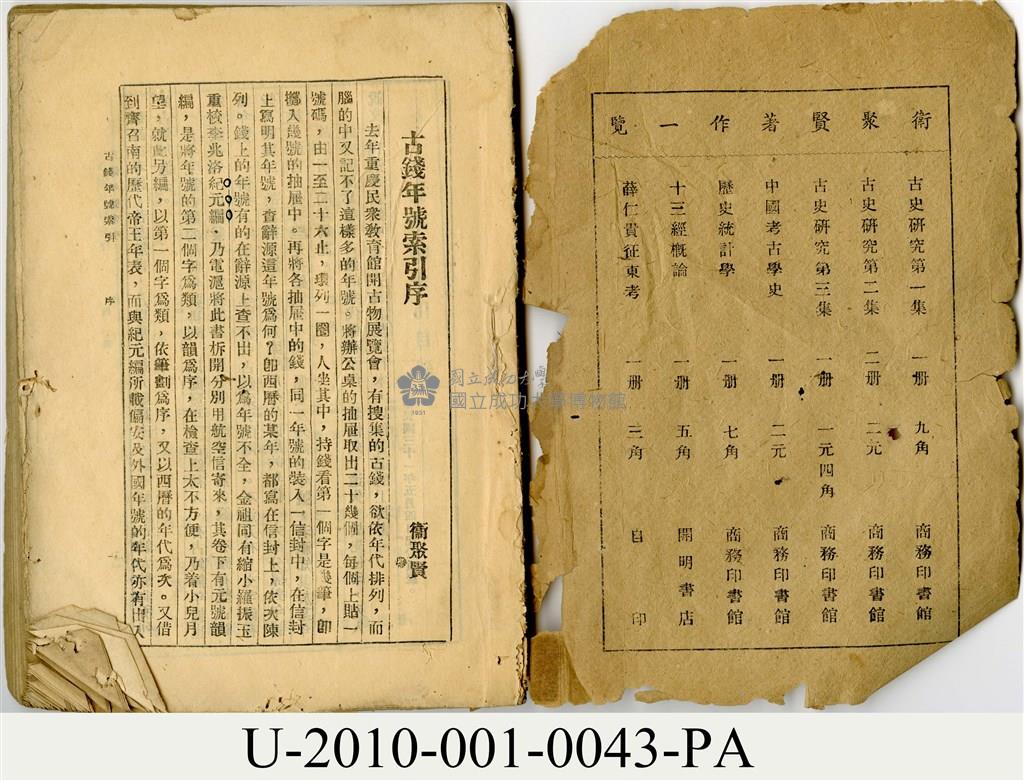 衛聚賢著作一覽
古史研究第一集 一册 九角 商務印書館
古史研究第二集 二册 二元 商務印書館
古史研究第三集 一册 一元四角 商務印書館
中國考古學史 一册 二元 商務印書館
歷史統計學 一册 七角 商務印書館
十三經概論 一册 五角 開明書店
薛仁貴征東考 一册 三角 自印
古錢年號索引序
衞聚賢
去年重慶民衆敎育館開古物展覽會，有搜集的古錢，欲依年代排列，而
腦的中又記不了這樣多的年號。將辦公桌的抽屜取出二十幾個，每個上貼一
號碼，由一至二十六止，環列一圈，人坐其中，持錢看第一個字是幾筆，卽
擲入幾號的抽屜中。再將各抽屜中的錢，同一年號的裝入一信封中，在信封
上寫明其年號，查辭源這年號爲何？卽西曆的某年，都寫在信封上，依次陳
列。錢上的年號有的在辭源上查不出，以爲年號不全，金祖同有縮小羅振玉
重校李兆洛紀元編，乃電滬將此書拆開分別用航空信寄來，其卷下有元號韻
編，是將年號的第二個字爲類，以韻爲序，在檢查上太不方便，乃着小兒月
望，就此另編，以第一個字爲類，依筆劃爲序，又以西曆的年代爲次。又借
到齊召南的歷代帝王年表，而與紀元編所載偏安及外國年號的年代亦有出入
古錢年號索引 序
國立成功大學
國立成功大學博物館
1931
U-2010-001-0043-PA